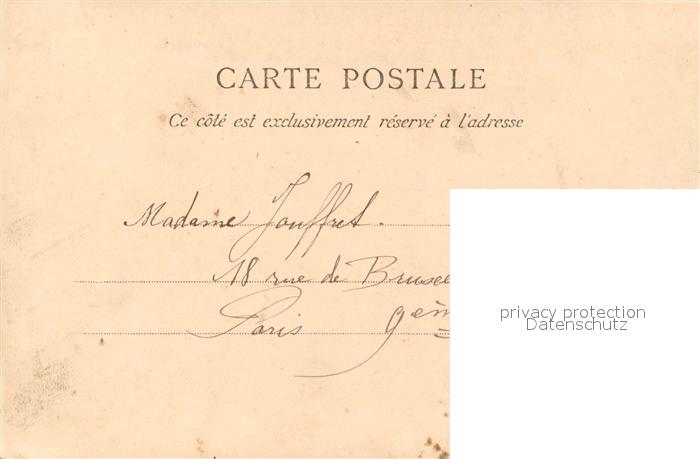 CARTE POSTALE
Ce côté est exclusivement réservé à l'adresse
Madame Jouffret.
18 rue de Bruxe
Paris 9èm
privacy protection
Datenschutz